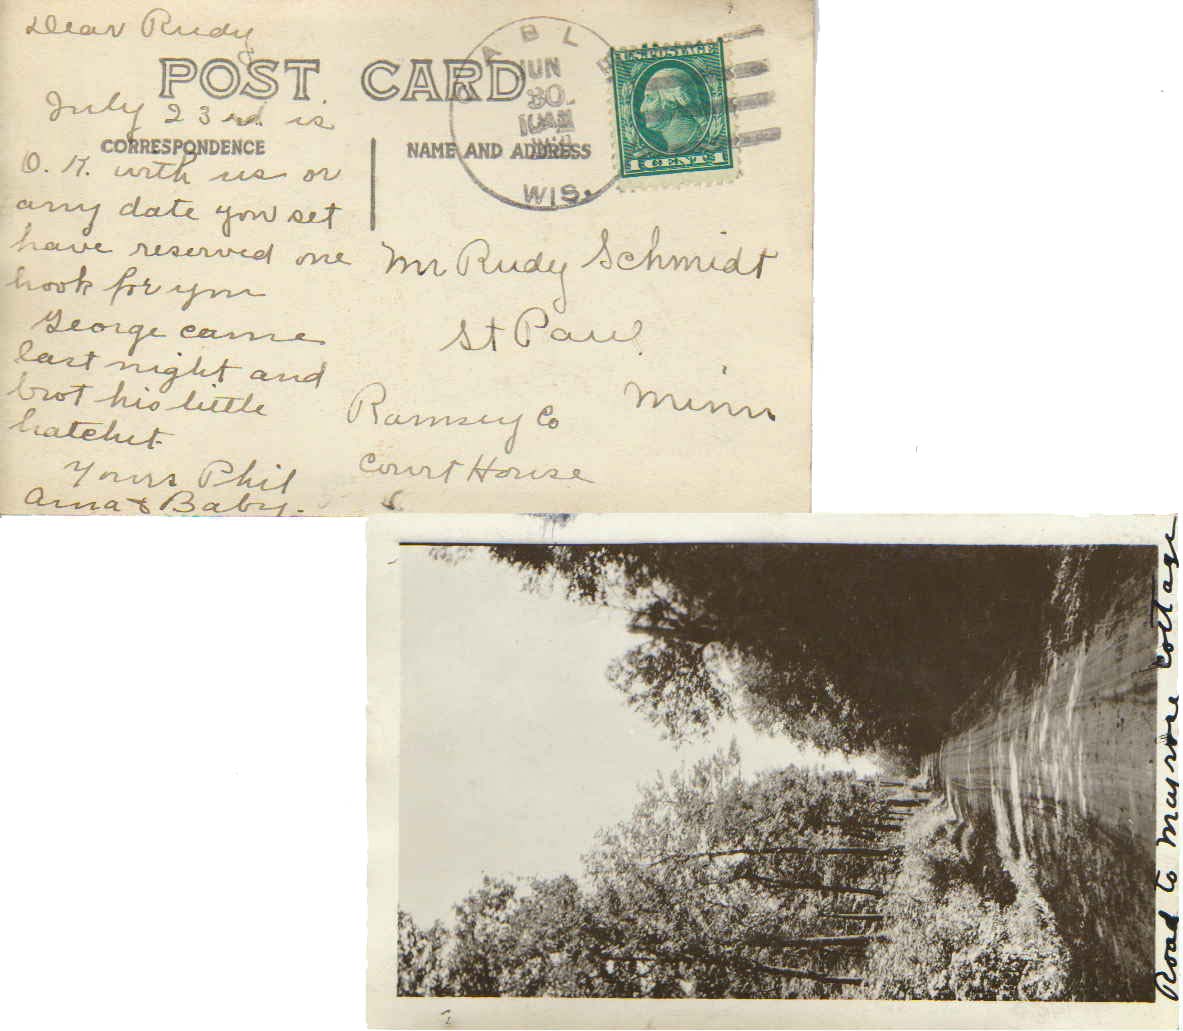 Dear Rudy
POST CARD
July 23rd. is
CORRESPONDENCE
NAME AND ADDRESS
O. K. with us or
any date you set
have reserved one
hook for you
George came
last night and
brot his little
hatchet
Yours Phil
Anna & Baby.
JUN
30
WIS.
U.S. POSTAGE
1 CENT 1
Mr Rudy Schmidt
St Paul
Minn
Ramsey Co
Court House
Road to Mayrose Cottage